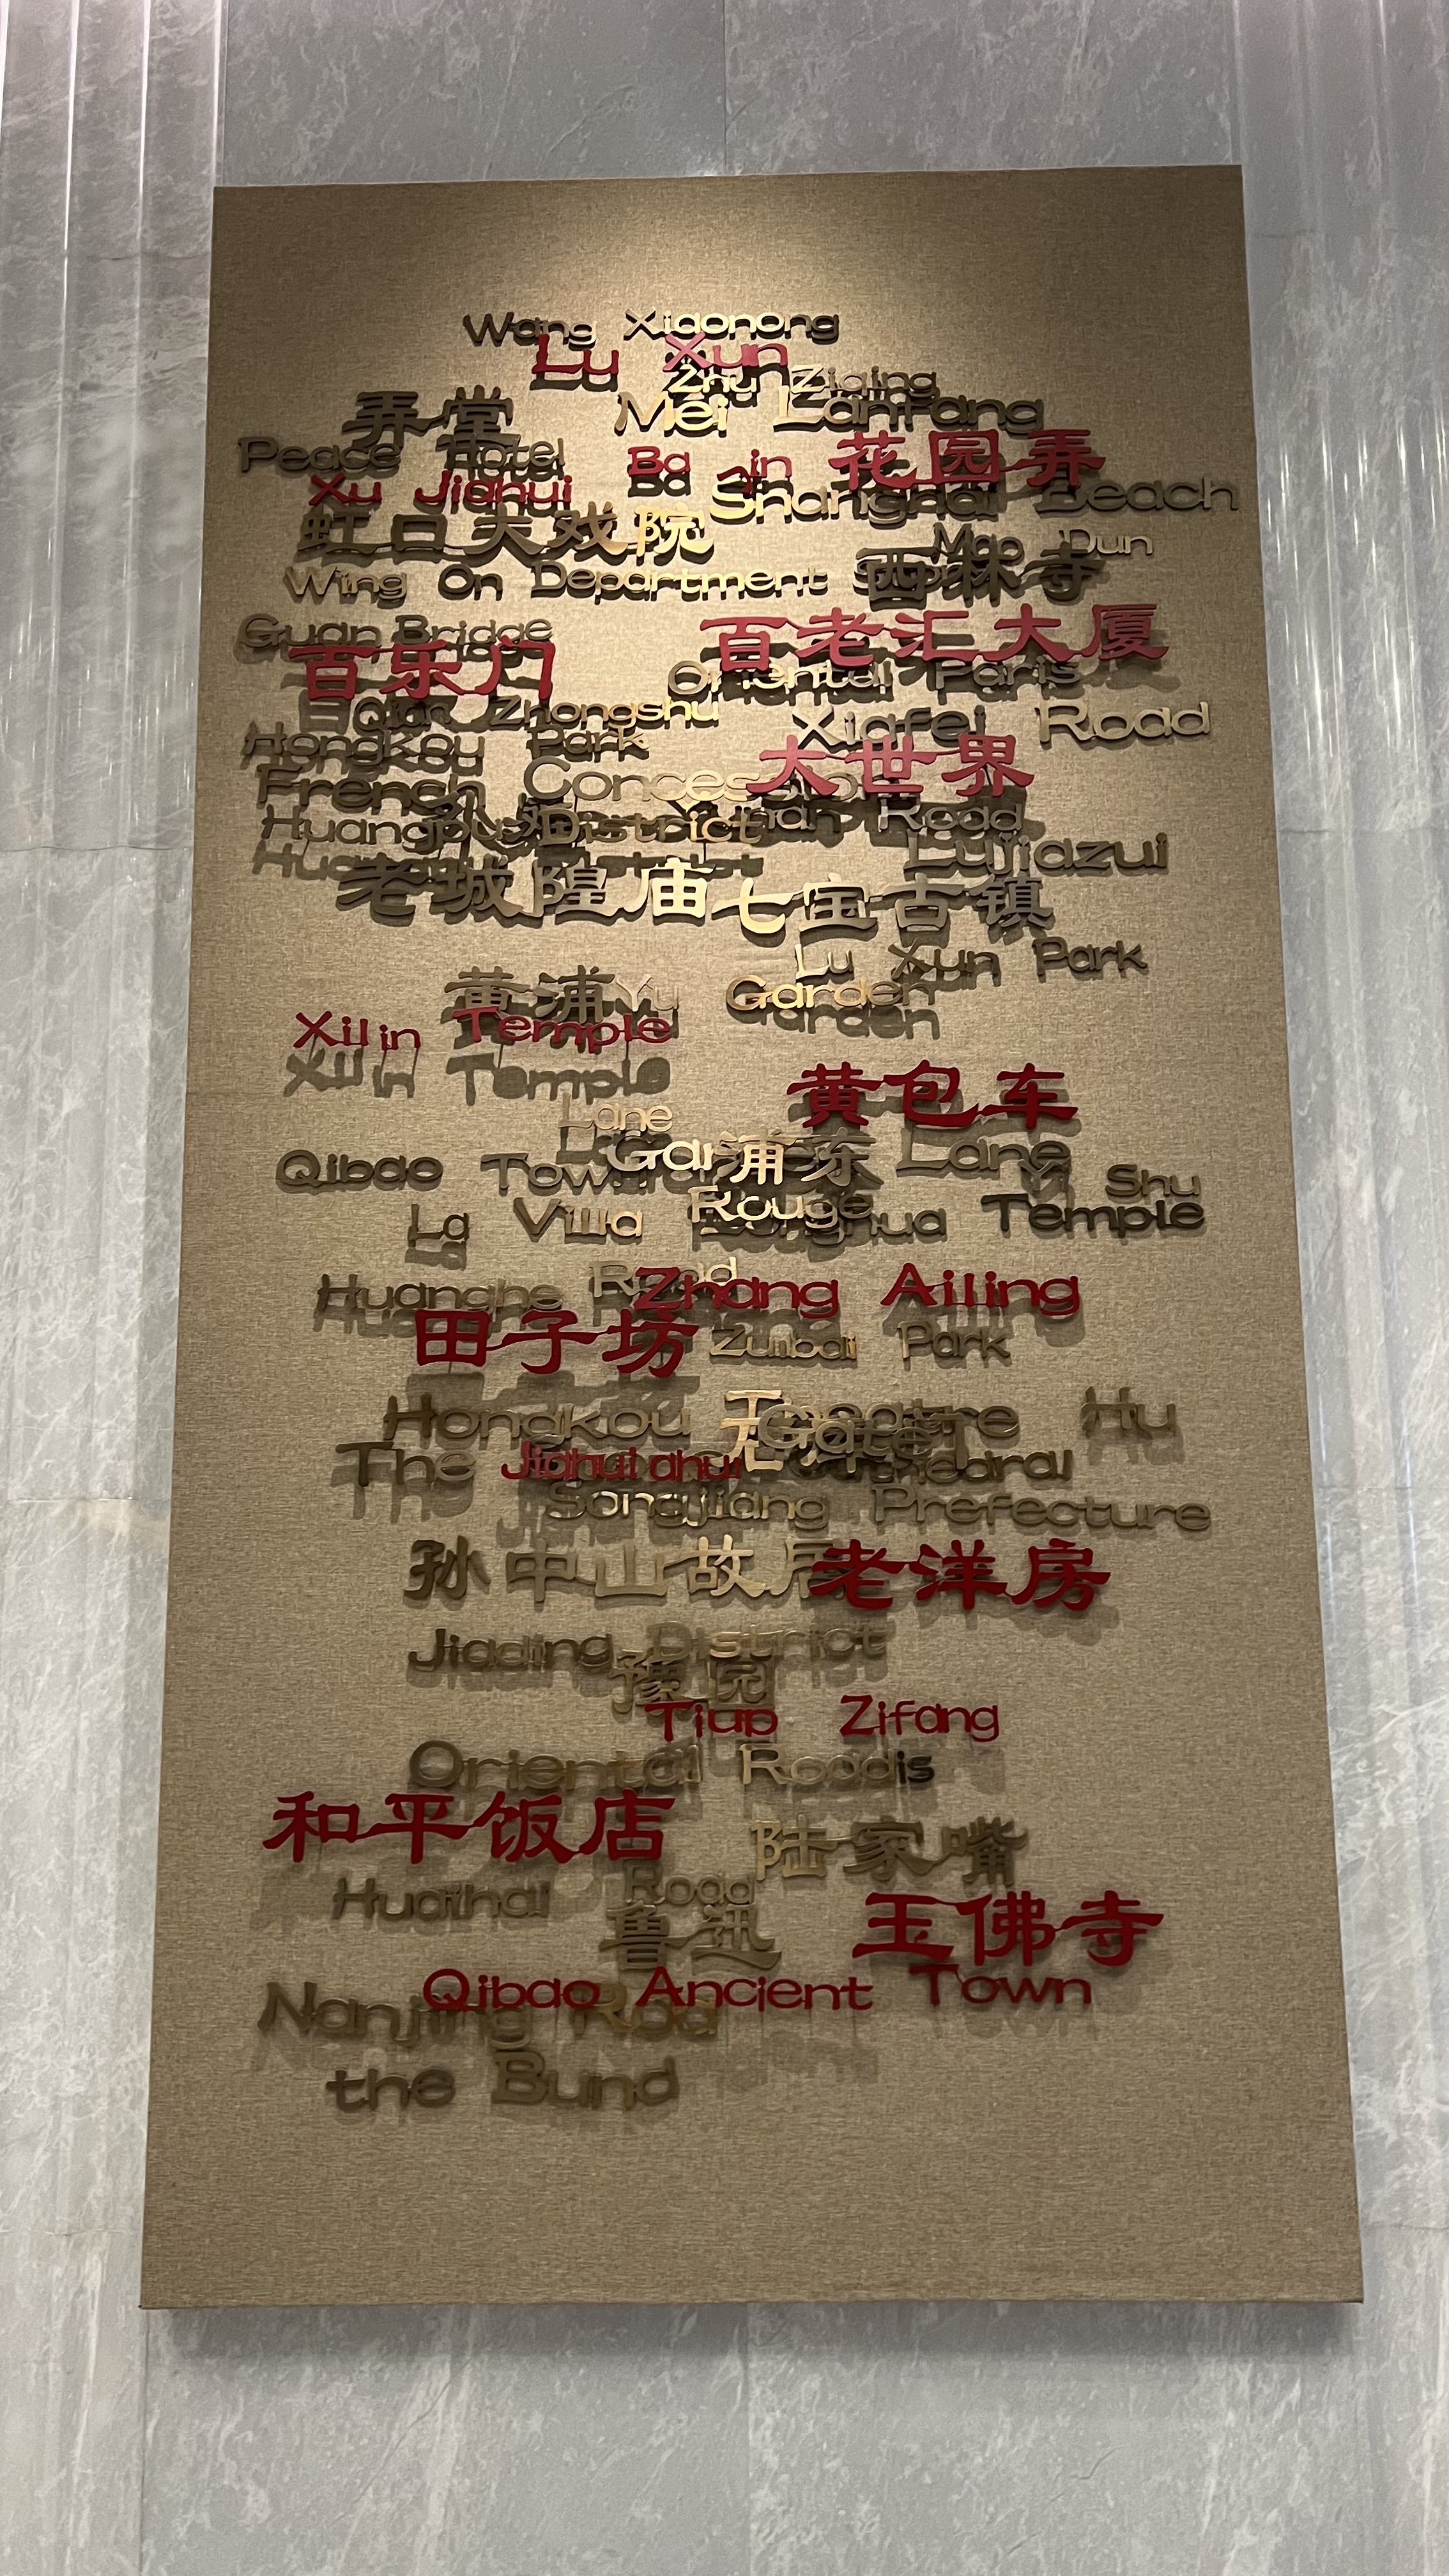 Wang Xiaonong
Lu Xun
Zhu Ziqing
弄堂 Mei Lanfang
Peace Hotel Ba Jin 花园弄
Xu Jiahui Shanghai Beach
虹口大戏院 Mao Dun
Wing On Department 西林寺
Guan Bridge 百老汇大厦
百乐门 Oriental Paris
Qian Zhongshu Xiafei Road
Hongkou Park 大世界
French
Huangpu District Road
Lujiazui
老城隍庙 七宝古镇
Lu Xun Park
黄浦 Yu Garden
Xilin Temple
黄包车
Lane
浦东 Lane
Qibao Shu
La Villa Rouge Temple
Huanghe Road Zhang Ailing
田子坊 Zuibai Park
Hongkou Theatre Hu
The
Songjiang Prefecture
孙中山故 老洋房
Jiading District
豫园
Zifang
Oriental
和平饭店 陆家嘴
Huaihai Road
鲁迅 玉佛寺
Qibao Ancient Town
Nanjing
the Bund